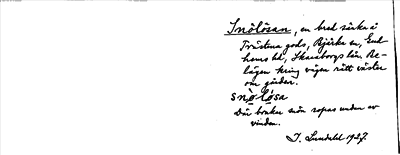 Snölösan, en bred sänka å
Trästena gods, Bjärke sn, Gud-
hems hd, Skaraborgs län. Be-
lägen kring vägen rätt väster
om gården.
snölösa
Där brukar snön sopas undan av
vinden.
J. Lundahl 1927.